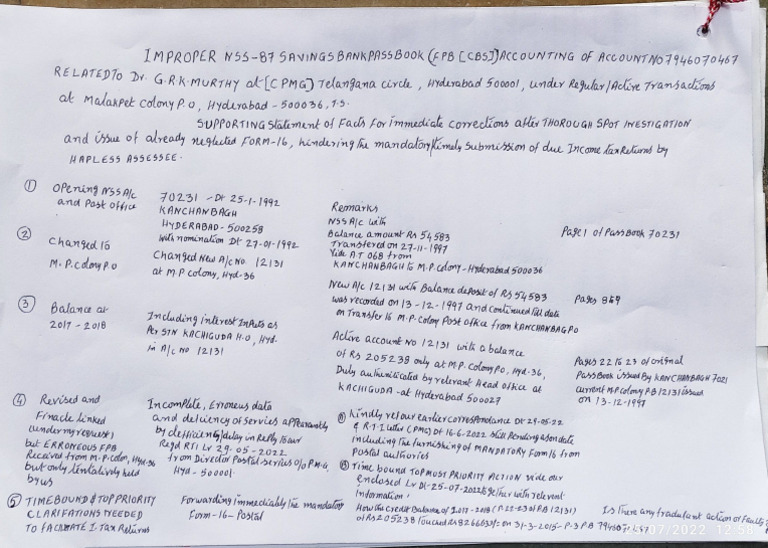 IMPROPER NSS-87 SAVINGS BANK PASS BOOK (FPB [CBS]) ACCOUNTING OF ACCOUNT NO 7946070467
RELATED TO Dr. G.R.K. MURTHY at [CPMG] Telangana circle, Hyderabad 500001, under Regular/Active Transactions
at Malakpet Colony P.O, Hyderabad - 500036, T.S.
SUPPORTING Statement of Facts For immediate corrections after THOROUGH SPOT INESTIGATION
and issue of already neglected FORM-16, hindering the mandatory/timely Submission of due Income tax Returns by
HAPLESS ASSESSEE.
① Opening NSS A/c
and Post office
70231 - Dt 25-1-1992
KANCHANBAGH
HYDERABAD - 500258
with nomination Dt 27-01-1992
Remarks
NSS A/c with
Balance amount Rs 54,583
Transferred on 27-11-1997
Vide A.T 068 from
KANCHANBAGH to M.P. Colony - Hyderabad 500036
Page 1 of Pass Book 70231
② Changed to
M.P. colony P.O
Changed New A/c No. 12131
at M.P colony, Hyd-36
New A/c 12131 with Balance deposit of Rs 54583
was recorded on 13-12-1997 and continued till date
on Transfer to M.P. Colony Post office from KANCHANBAG PO
Pages 8&9
③ Balance at
2017 - 2018
Including interest Inputs as
Per STN KACHIGUDA H.O, Hyd.
in A/c No 12131
Active account No 12131 with a balance
of Rs 205238 only at M.P. Colony P.O, Hyd-36,
Duly authenticated by relevant Head office at
KACHIGUDA - at Hyderabad 500027
Pages 22 to 23 of original
Pass Book issued by KANCHANBAGH 7021
current M.P colony PB 12131 issued
on 13-12-1997
④ Revised and
Finacle linked
(under my request)
but ERRONEOUS FPB
Received from M.P. colony, Hyd-36
but only tentatively held
by us
Incomplete, Erroneus data
and deficiency of services apparently
by deficiency/delay in Reply to our
Regd RTI Lr 29-05-2022
from Director Postal services O/o P.M.G.
Hyd - 500001.
Ⓐ Kindly ref our earlier correspondance Dt 29-05-22
& R.T.I Letter (PMG) Dt 16-6-2022 still Pending as on date
including the furnishing of MANDATORY Form 16 from
Postal authorities
Ⓑ Time bound TOPMOST PRIORITY ACTION vide our
enclosed Lr Dt-25-07-2022 together with relevant
Information.
⑤ TIMEBOUND & TOP PRIORITY
CLARIFATIONS NEEDED
TO FACILITATE I. Tax Returns
Forwarding immediately the mandatory
Form-16 - Postal
How the Credit Balance of 2017-2018 (P-22-23 of PB 12131)
of Rs 205238 on 31-3-2015 - P-3 PB
Is there any fradulant action or Faulty
07/2022 12:56